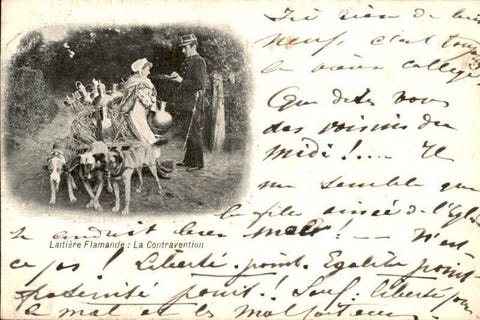 Ici rien de bien
neuf, c'est toujours
le vieux collège
Que dites vous
des voisins du
Midi !.... Il
me semble que
la fille aînée de l'Eglise
se conduit bien mal ! — N'est
ce pas ! Liberté point. Egalité point.
fraternité point ! Sauf : liberté pour
le mal et les malfaiteurs
Laitière Flamande : La Contravention